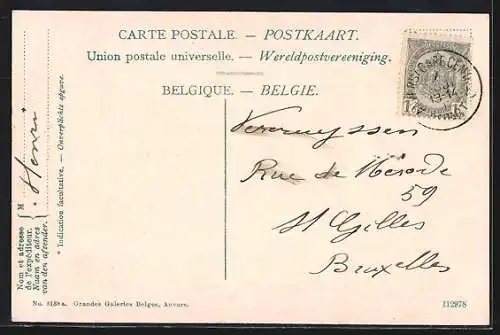 CARTE POSTALE. — POSTKAART.
Union postale universelle. — Wereldpostvereeniging.
BELGIQUE. — BELGIE.
Vereruyssen
Rue de Mérode
59
St Gilles
Bruxelles
M Henri
Nom et adresse
de l'expéditeur.
Naam en adres
van den afzender.
* Indication facultative. — Onverplichte opgave.
No. 3138 a. Grandes Galeries Belges, Anvers.
112978